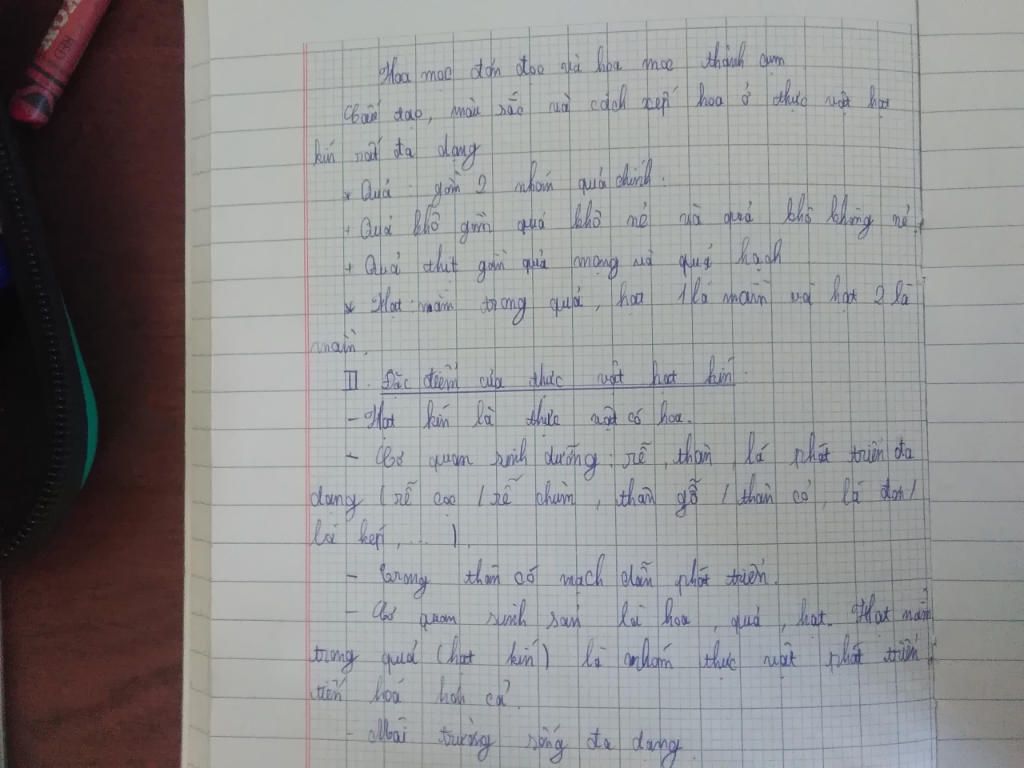 Hoa mọc đơn độc và hoa mọc thành cụm
Cấu tạo, màu sắc và cách xếp hoa ở thực vật hạt
kín rất đa dạng
* Quả gồm 2 nhóm quả chính.
+ Quả khô gồm quả khô nẻ và quả khô không nẻ.
+ Quả thịt gồm quả mọng và quả hạch
* Hạt nằm trong quả, hoa 1 lá mầm và hạt 2 lá
mầm.
II. Đặc điểm của thực vật hạt kín.
- Hạt kín là thực vật có hoa.
- Cơ quan sinh dưỡng: rễ, thân, lá phát triển đa
dạng (rễ cọc / rễ chùm, thân gỗ / thân cỏ, lá đơn /
lá kép, ...).
- Trong thân có mạch dẫn phát triển.
- Cơ quan sinh sản là hoa, quả, hạt. Hạt nằm
trong quả (hạt kín) là nhóm thực vật phát triển
tiến hoá hơn cả.
- Môi trường sống đa dạng